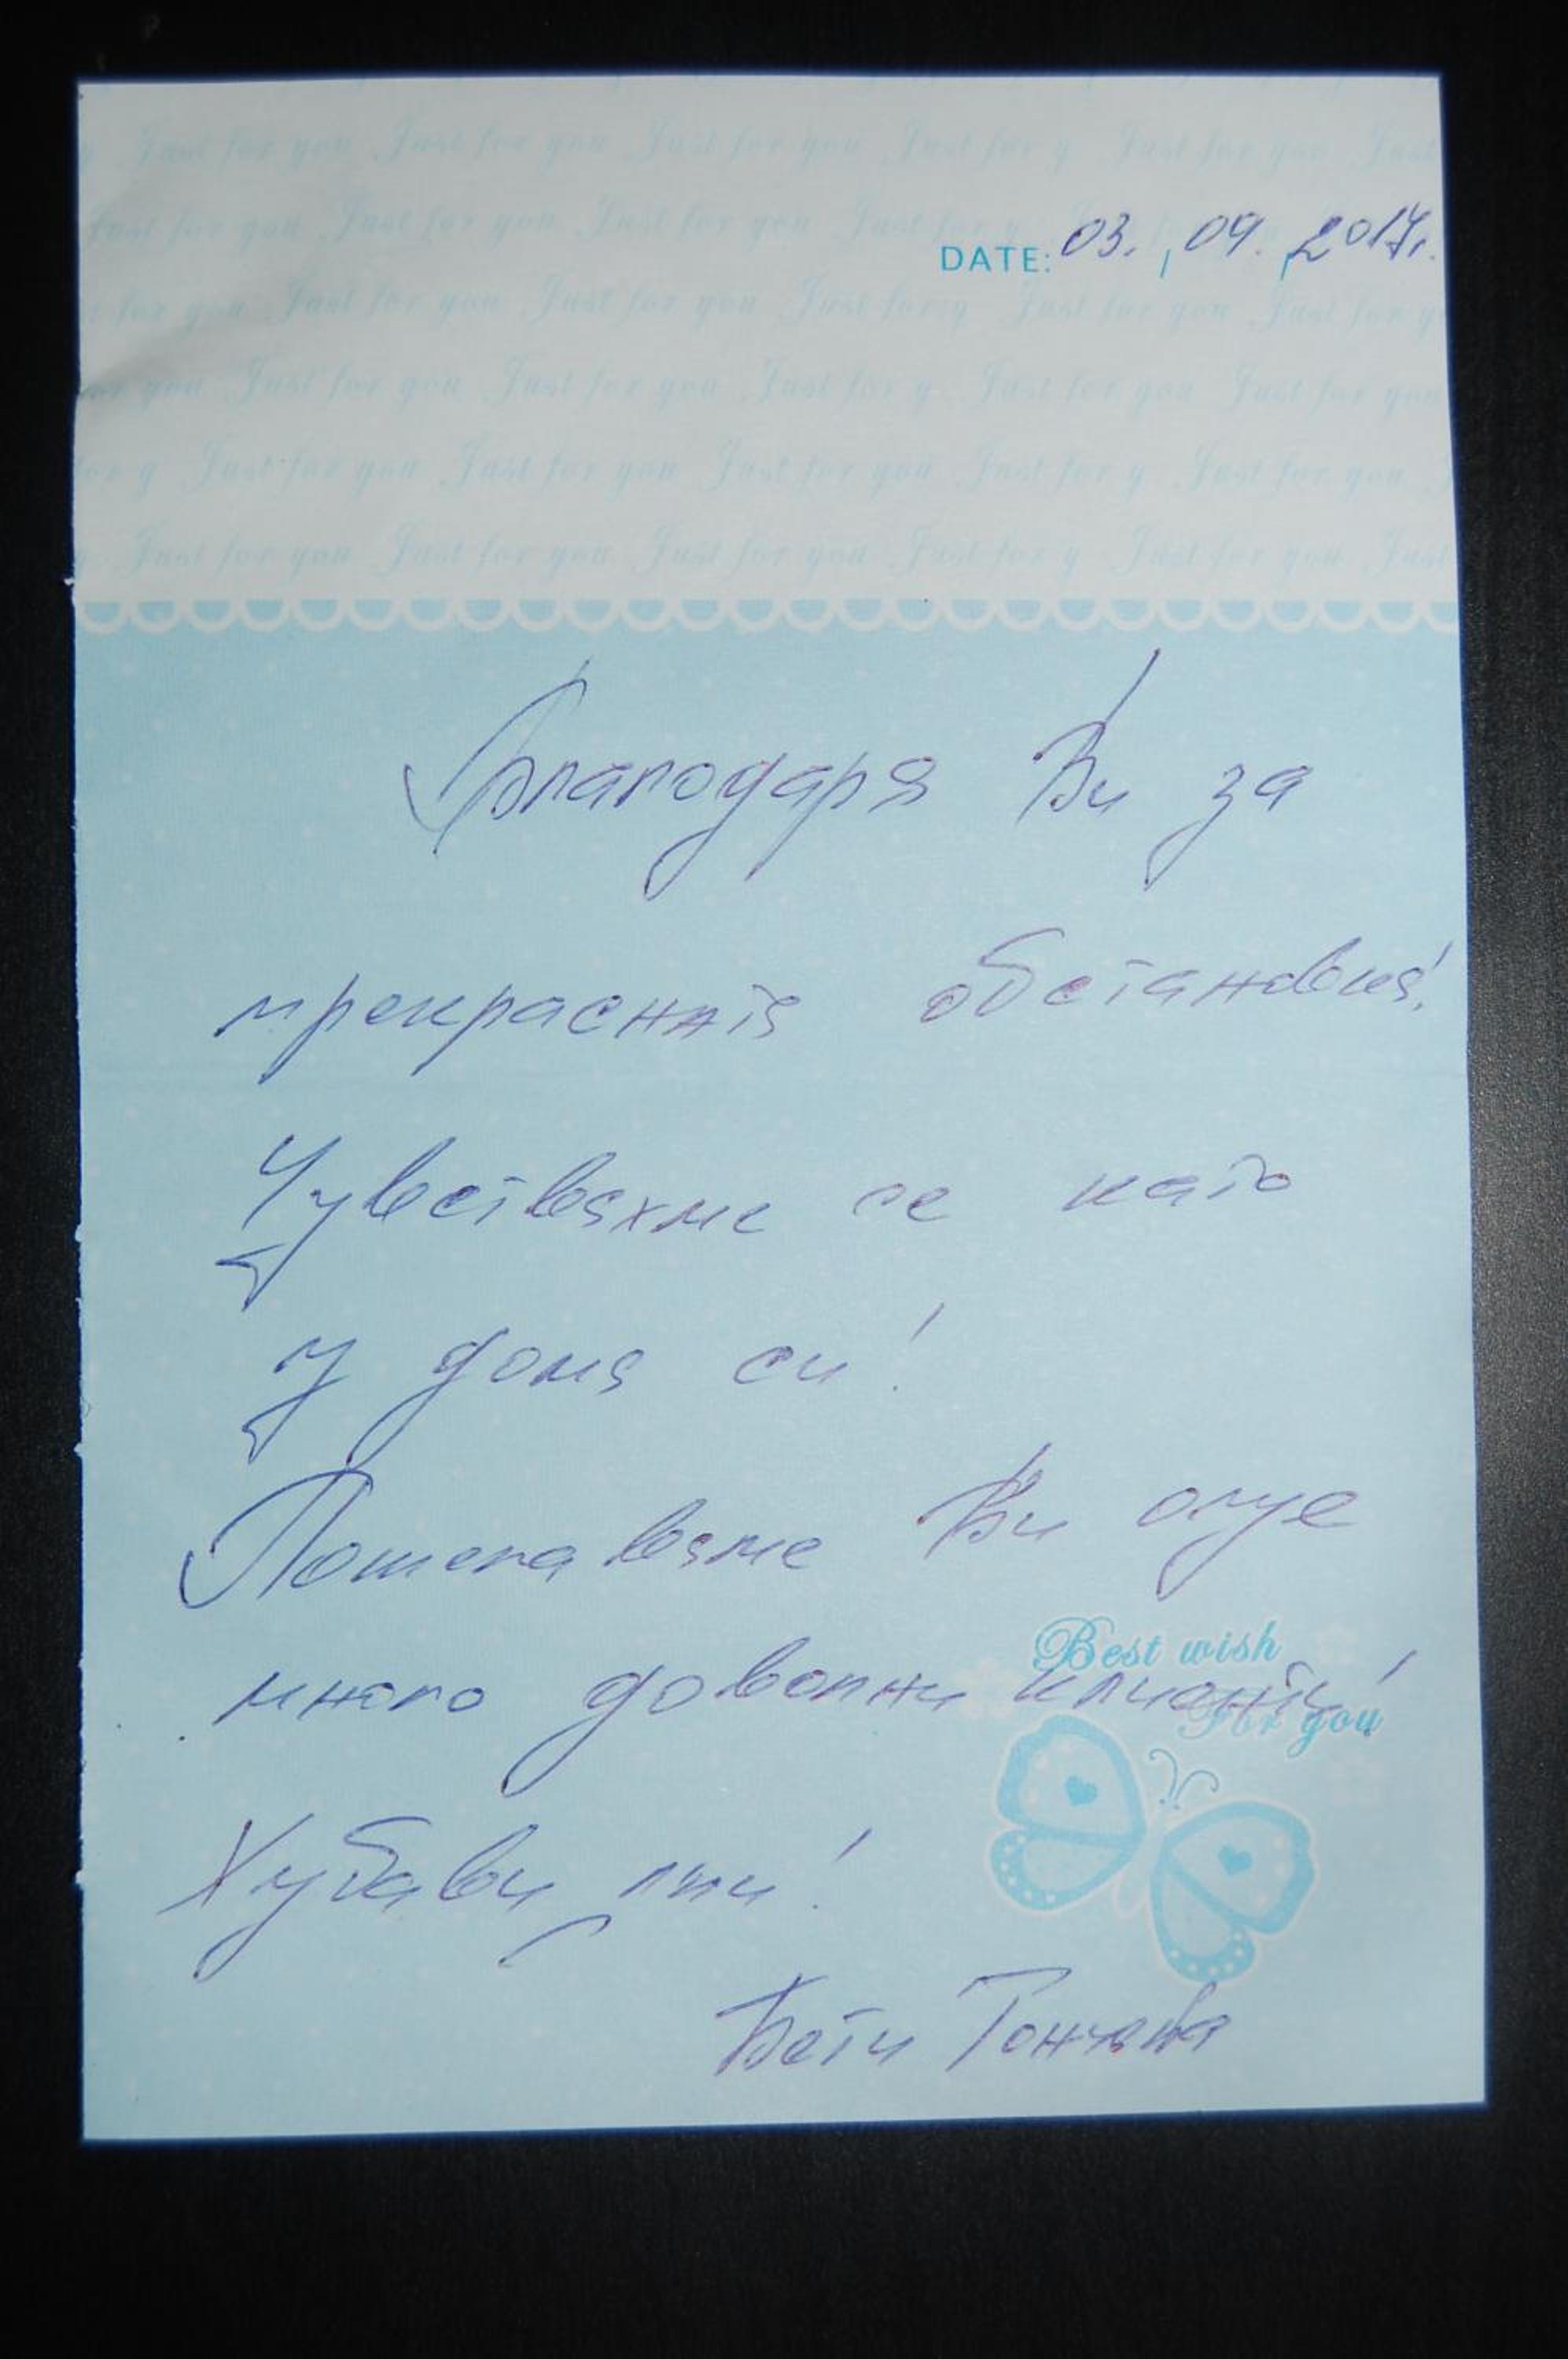 Just for you Just for you Just for you Just for y Just for you Just
Just for you Just for you Just for you Just for y
DATE: 03. , 09. , 2017г.
for you Just for you Just for you Just for y Just for you Just for y
for you Just for you Just for you Just for y Just for you Just for you
for y Just for you Just for you Just for you Just for y Just for you
Just for you Just for you Just for you Just for y Just for you Just
Благодаря Ви за
прекрасната обстановка!
Чувствахме се като
у дома си!
Пожелаваме Ви още
Best wish
много доволни клиенти!
For you
Хубави дни!
Бети Тончева